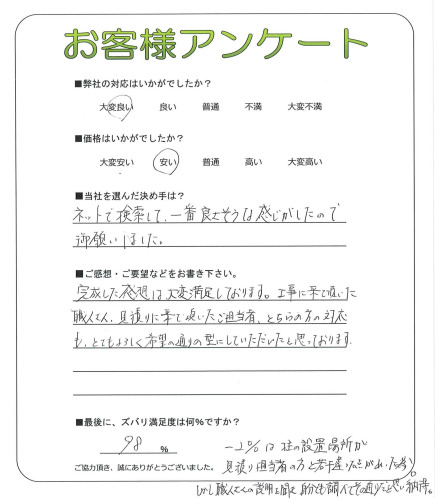 お客様アンケート
■弊社の対応はいかがでしたか?
大変良い 良い 普通 不満 大変不満
■価格はいかがでしたか?
大変安い 安い 普通 高い 大変高い
■当社を選んだ決め手は?
ネットで検索して、一番良さそうな感じがしたので
御願いしました。
■ご感想・ご要望などをお書き下さい。
完成した感想は大変満足しております。工事に来て頂いた
職人さん、見積りに来て頂いたご担当者、どちらの方の対応
も、とてもよろしく希望の通りの型にしていただいたと思っております。
■最後に、ズバリ満足度は何%ですか?
98 %
-2%は柱の設置場所が
ご協力頂き、誠にありがとうございました。
見積り担当者の方と若干違いがあった為。
しかし職人さんの説明を聞き 自分も調べてその通りだと思い納得。